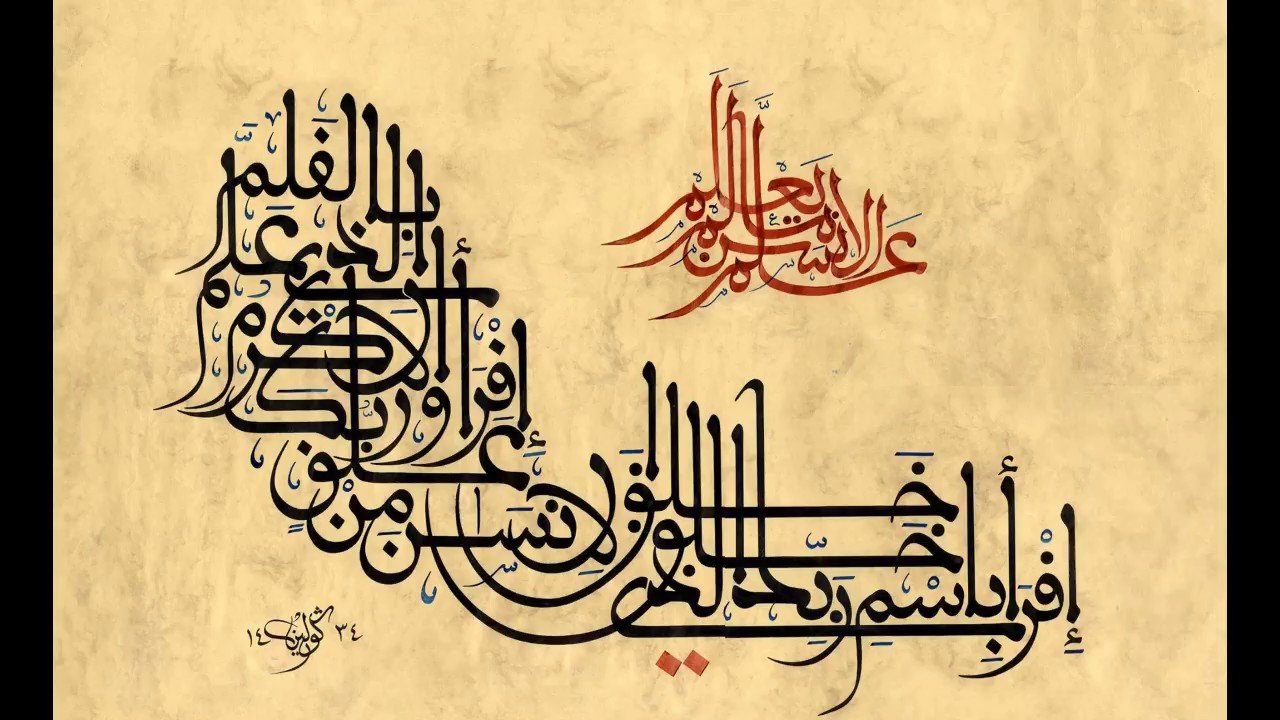 إقرأ باسم ربك الذي خلق
خلق الانسٰن من علق
إقرأ وربك الاكرم
الذي علم بالقلم
علم الانسٰن ما لم يعلم
١٤٣٤